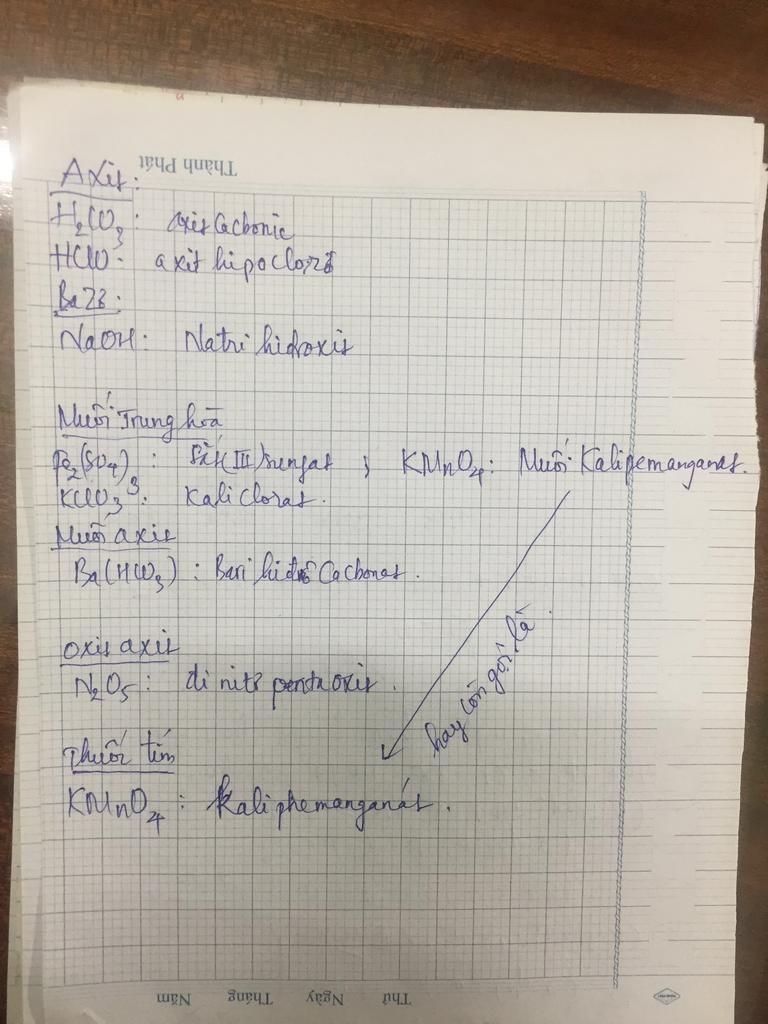 Thành Phát
Axit:
H2CO3: axit Cacbonic
HClO: axit hipoclorơ
Bazơ:
NaOH: Natri hidroxit
Muối Trung hoà
Fe2(SO4)3: Sắt (III) sunfat ; KMnO4: Muối Kalipemanganat.
KClO3: Kali clorat.
Muối axit
Ba(HCO3): Bari hiđrô Cacbonat.
oxit axit
N2O5: đi nitơ penta oxit.
hay còn gọi là.
Thuốc tím
KMnO4: Kali phemanganát.
Thứ Ngày Tháng Năm